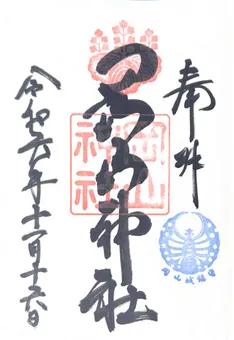 奉拝
神社
岡山
神社
岡山城鎮守
令和六年十一月十六日